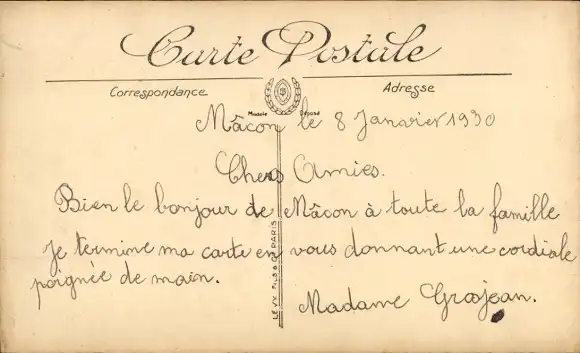 Carte Postale
Correspondance
Adresse
Modèle Déposé
Mâcon le 8 Janvier 1930
Chers Amies.
Bien le bonjour de Mâcon à toute la famille
Je termine ma carte en vous donnant une cordiale
poignée de main.
Madame Grosjean.
LEVY FILS & Cie PARIS